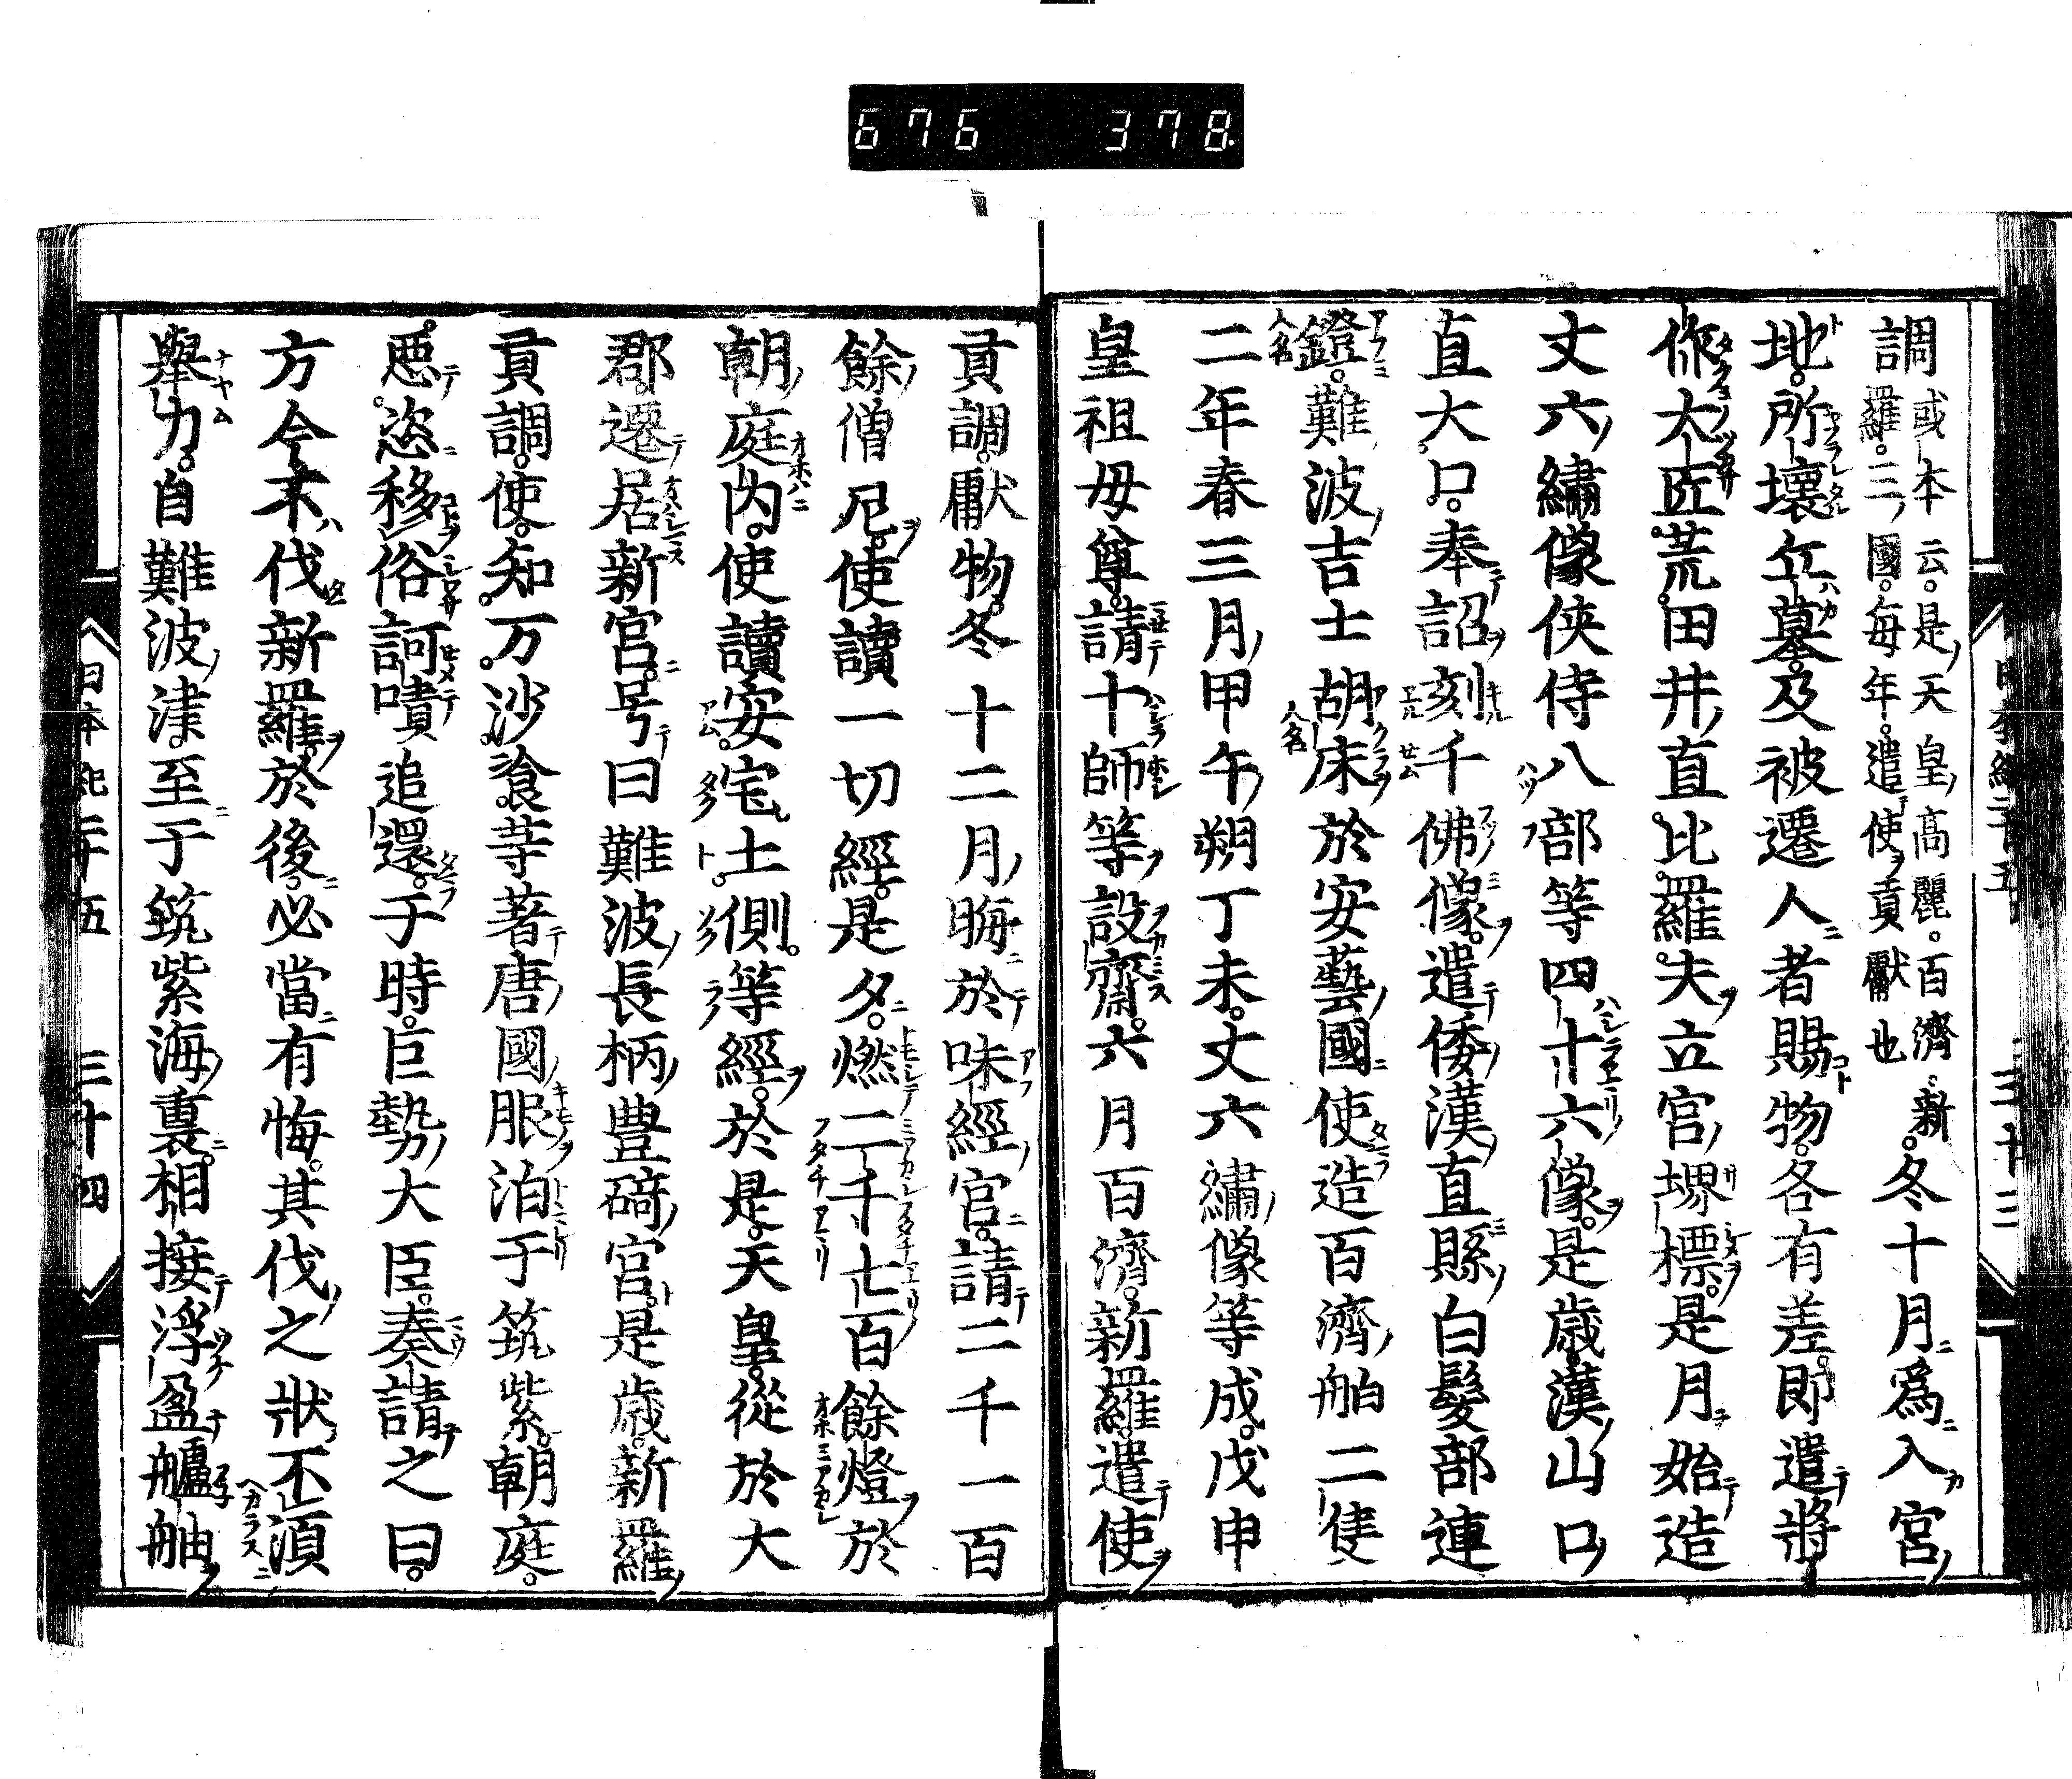 676 378
調或本云是天皇高麗百濟新
羅三國每年遣使貢獻也冬十月爲入宮
地所壞丘墓及被遷人者賜物各有差即遣將
作大匠荒田井直比羅夫立宮堺標是月始造
丈六繡像侠侍八部等四十六像是歳漢山口
直大口奉詔刻千佛像遣倭漢直縣白髮部連
鐙難波吉士胡床於安藝國使造百濟舶二隻
二年春三月甲午朔丁未丈六繡像等成戊申
皇祖母尊請十師等設齋六月百濟新羅遣使
貢調獻物冬十二月晦於味經宮請二千一百
餘僧尼使讀一切經是夕燃二千七百餘燈於
朝庭内使讀安宅土側等經於是天皇從於大
郡遷居新宮号曰難波長柄豊碕宮是歳新羅
貢調使知万沙飡等著唐國服泊于筑紫朝庭
悪恣移俗訶嘖追還于時巨勢大臣奏請之曰
方今不伐新羅於後必當有悔其伐之狀不湏
擧力自難波津至于筑紫海裏相接浮盈艫舳
日本紀二十五 三十四